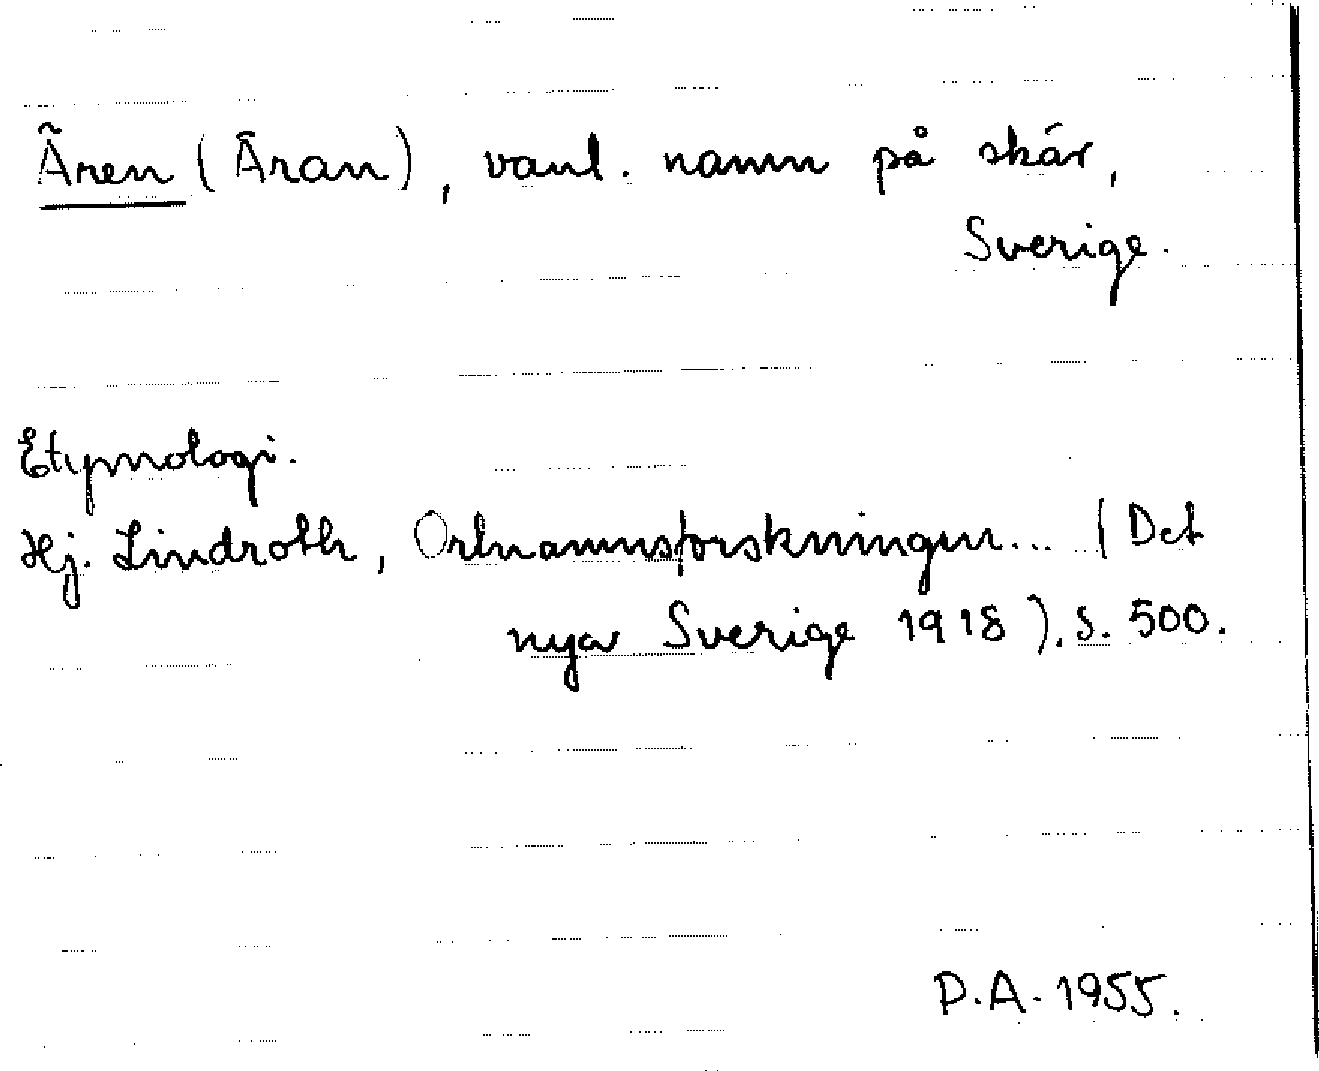 Ären (Äran), vanl. namn på skär,
Sverige.
Etymologi.
Hj. Lindroth, Ortnamnsforskningen... (Det
nya Sverige 1918). s. 500.
P.A. 1955.